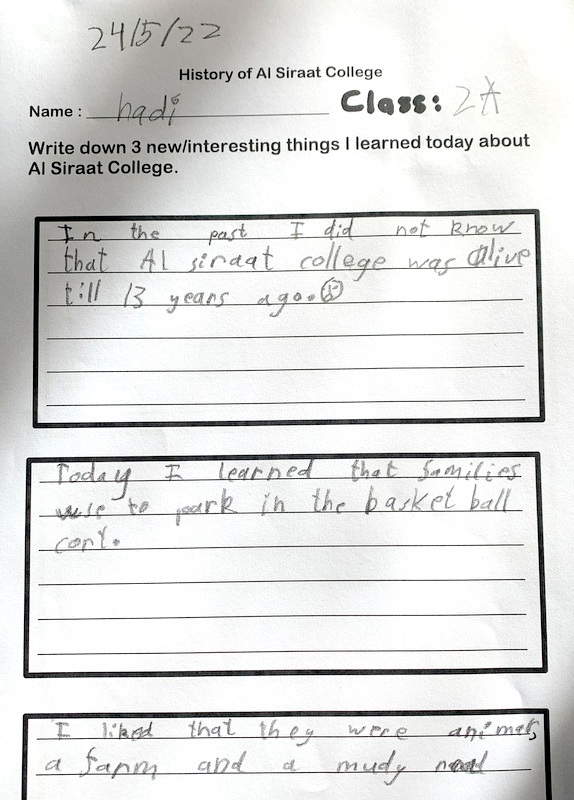 24/5/22
History of Al Siraat College
Name : hadi Class: 2A
Write down 3 new/interesting things I learned today about
Al Siraat College.
In the past I did not know
that Al siraat college was alive
till 13 years ago.
Today I learned that families
use to park in the basket ball
cort.
I liked that they were animals,
a farm and a mudy